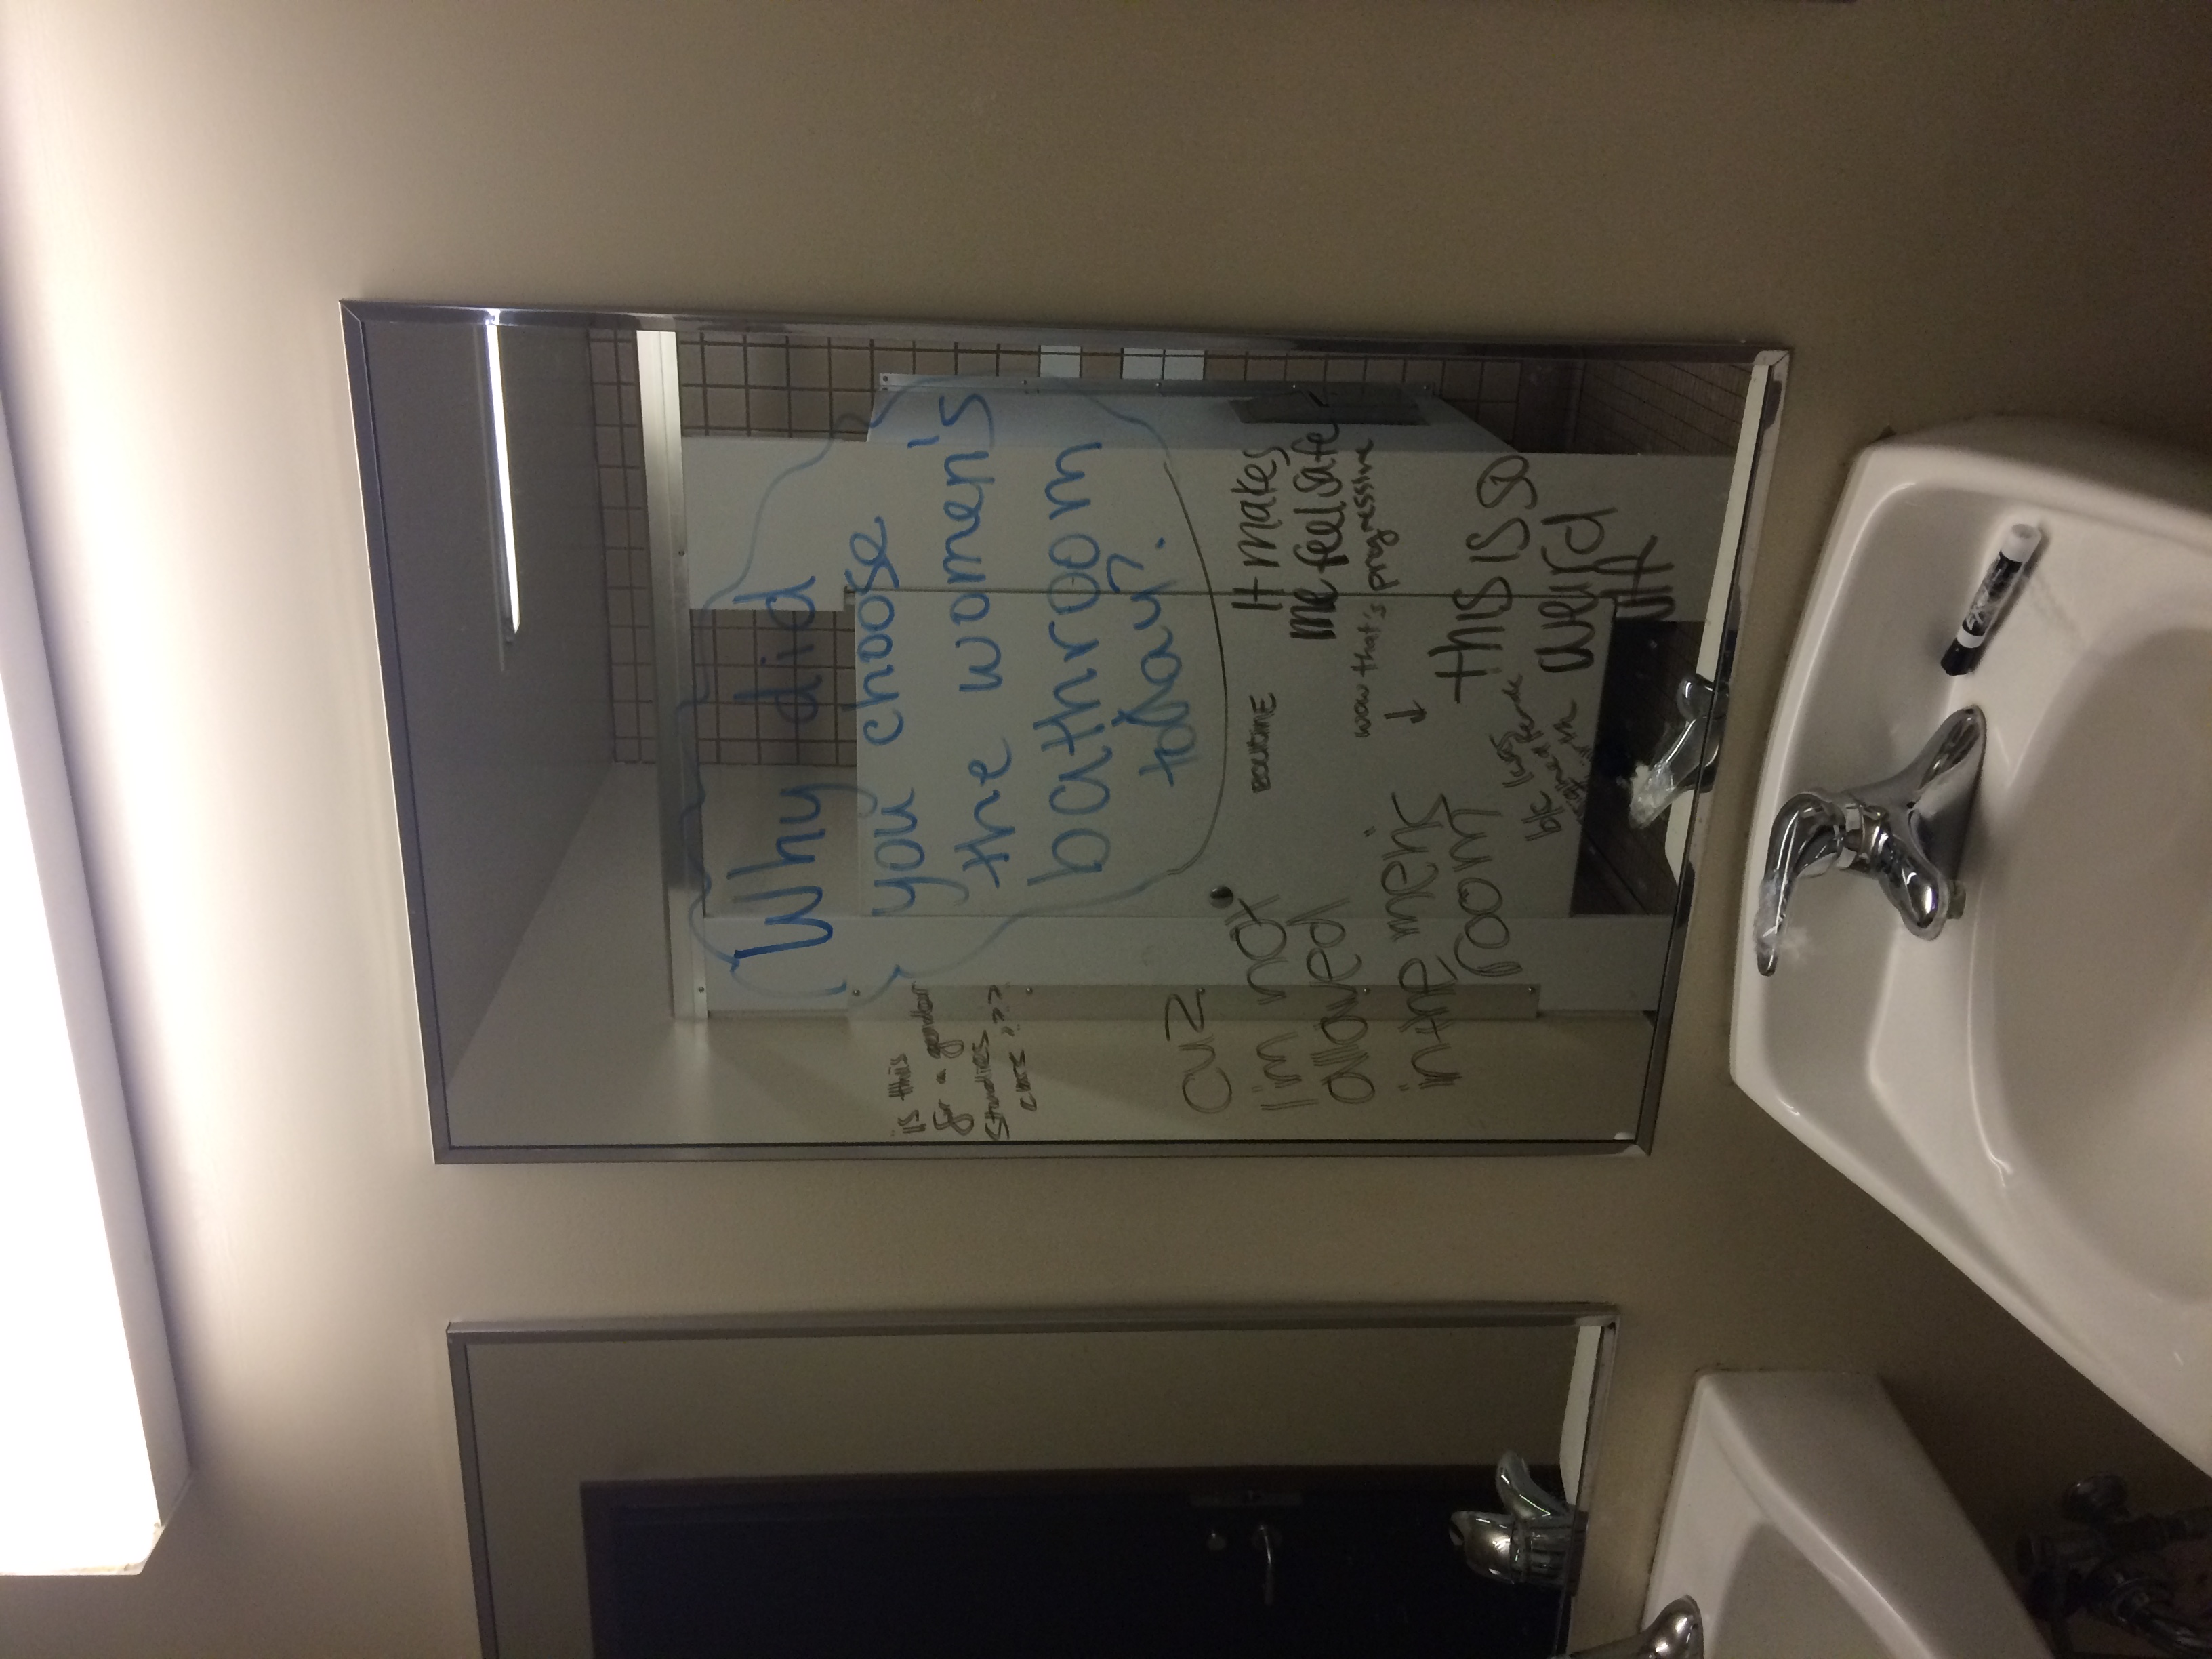 Why did
you choose
the women's
bathroom
today?
is this
for a gender
studies
cuz
I'm not
allowed
in the men's
room
ROUTINE
It makes
me feel safe
wow that's progressive
↓
this is so
weird
b/c I was
assigned female
birth
EXPO